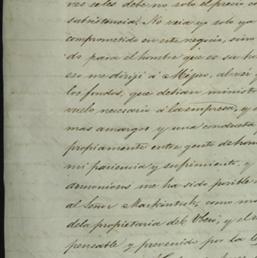 ves sales debe no solo el precio co
subsistencia. No seia yo solo ya
comprometido en este negocio, sino
do para el hombre que es su ha
eso me dirijí á Mijen, abrasi y
los fondos, que debian minist
melo necesario á la empresa, y
mas amargos y una conducta
propiamente entre gente de hon
mi paciencia y sufrimiento, y
demonios me ha sido posible
al Señor Mackintosh, como
dela propietaria del y el
pensable y prevenido por la le